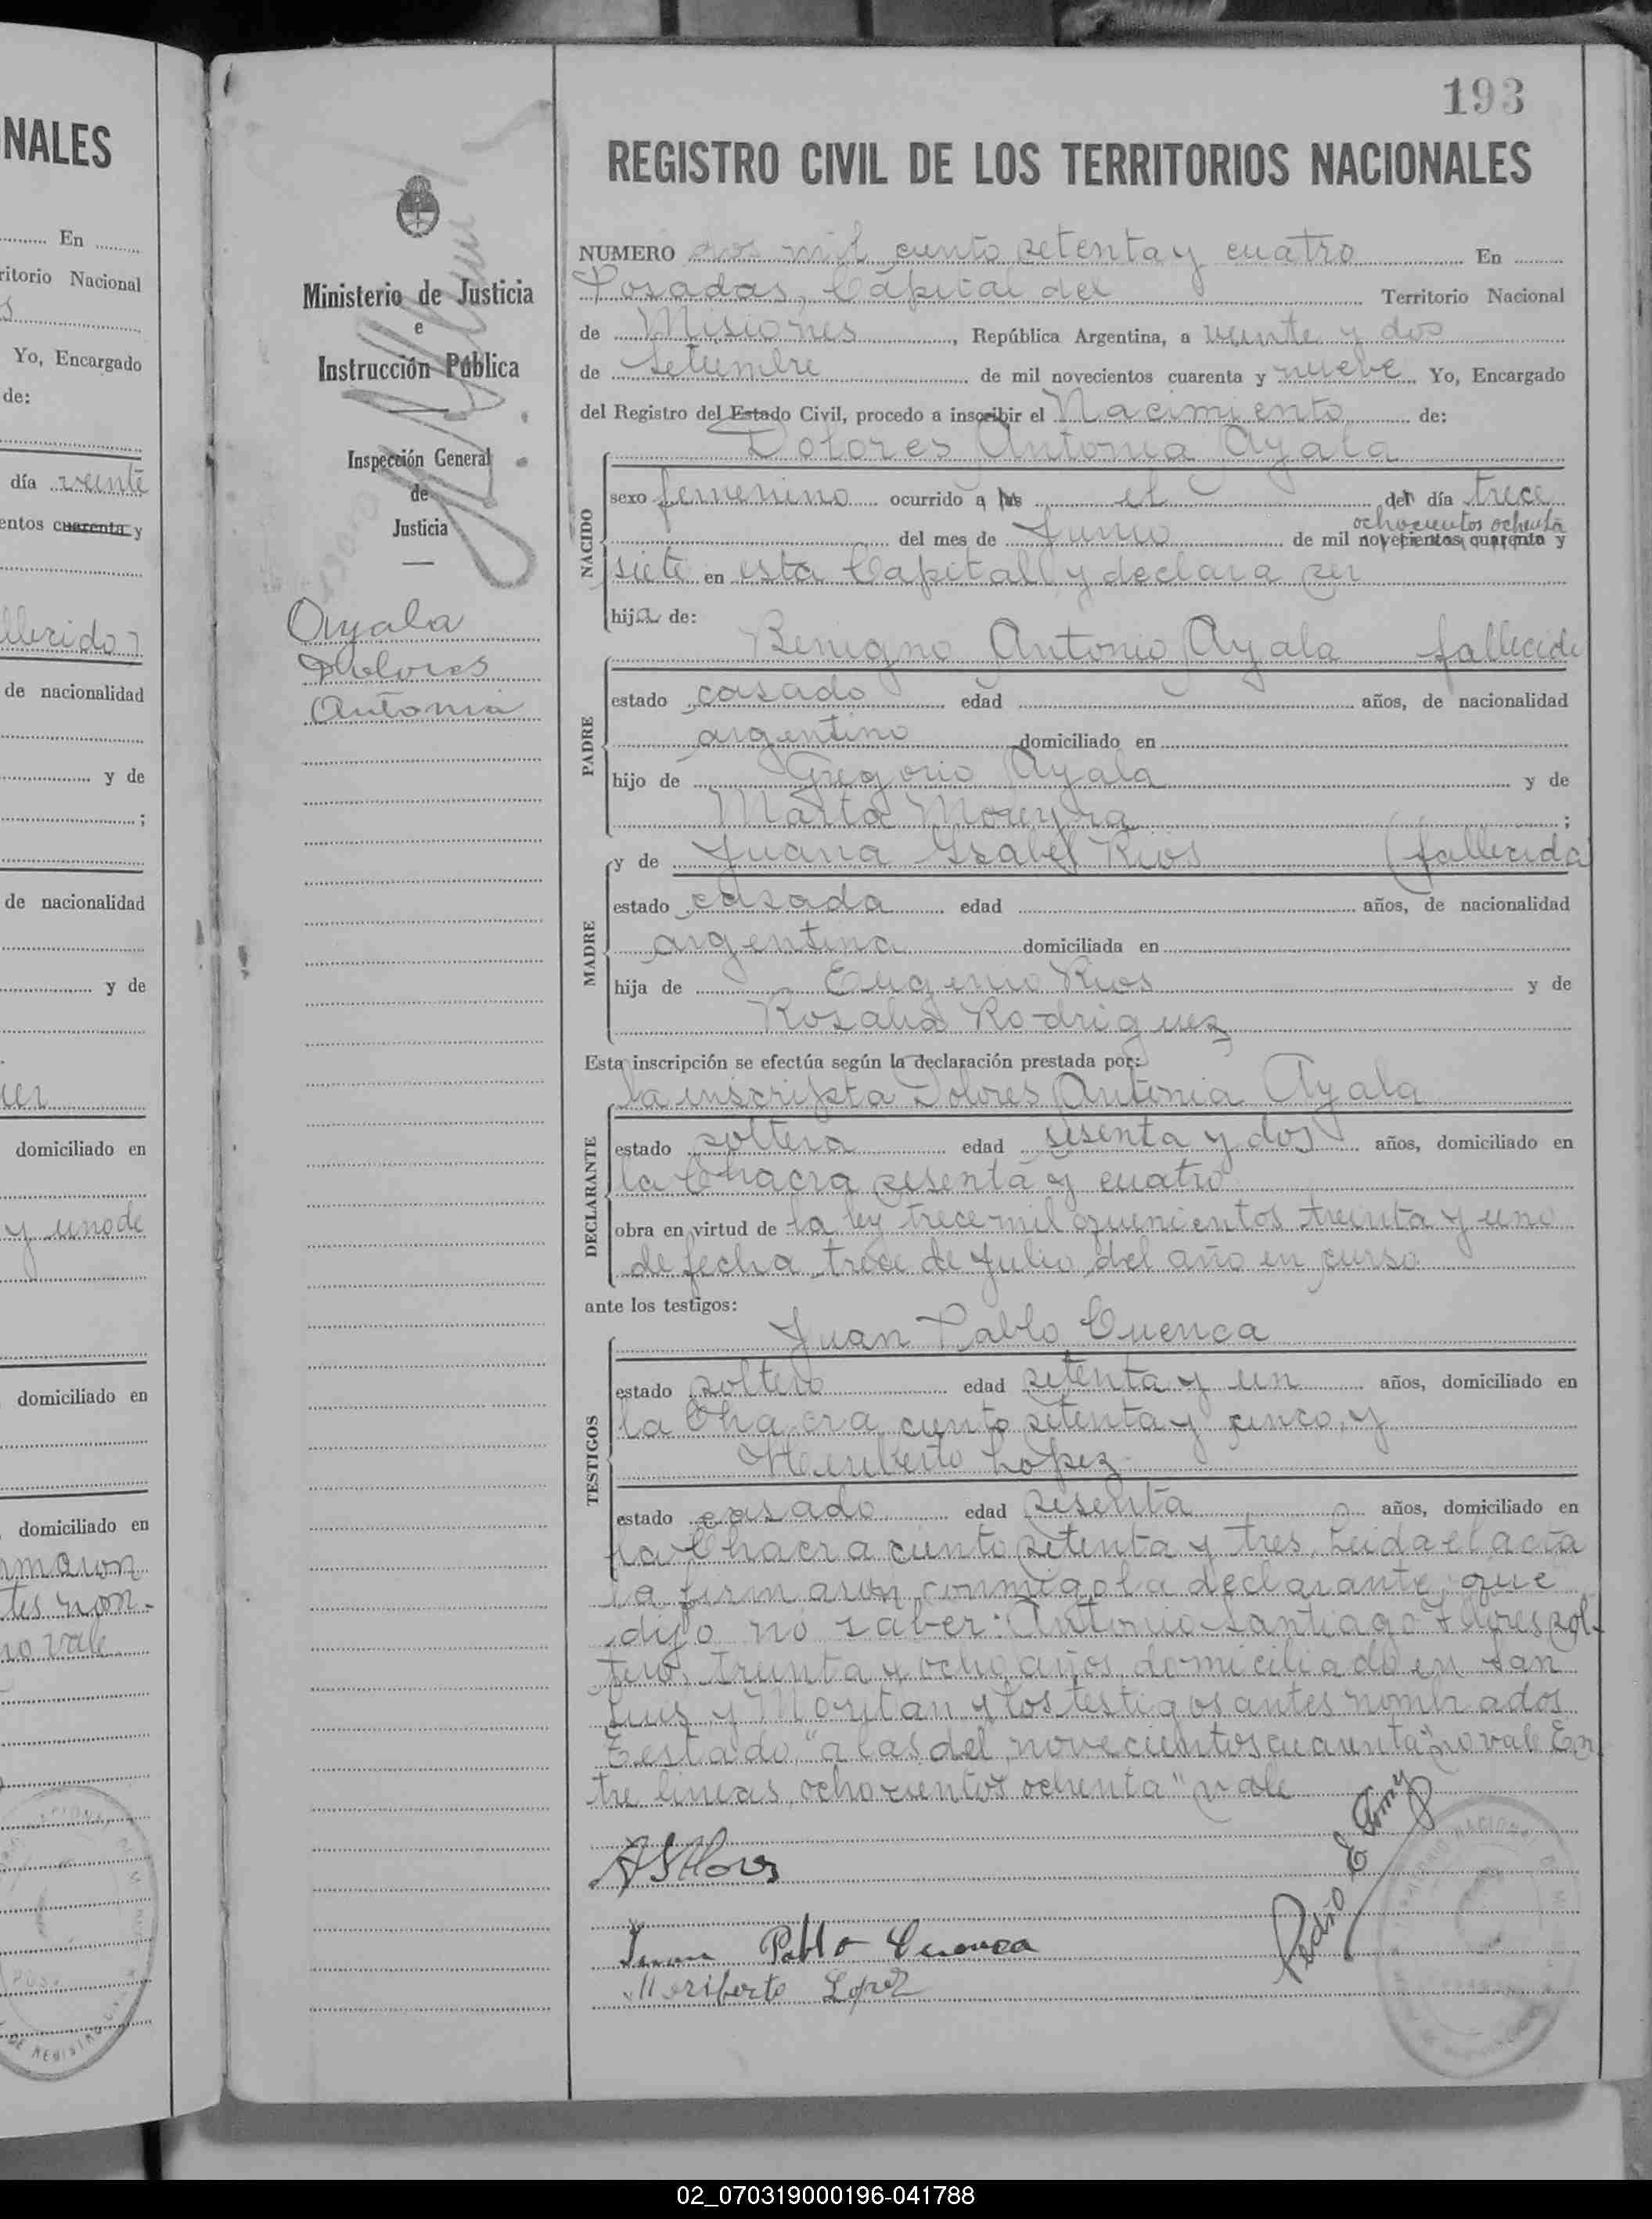 NALES
En
ritorio Nacional
Yo, Encargado
de:
día veinte
entos cuarenta y
llecido)
de nacionalidad
y de
;
de nacionalidad
y de
domiciliado en
y uno de
domiciliado en
domiciliado en
rmaron
tes non-
no vale
193
REGISTRO CIVIL DE LOS TERRITORIOS NACIONALES
Ministerio de Justicia
e
Instrucción Pública
Inspección General
de
Justicia
Ayala
Dolores
Antonia
NUMERO dos mil ciento setenta y cuatro En
Posadas, Capital del Territorio Nacional
de Misiones, República Argentina, a veinte y dos
de Setiembre de mil novecientos cuarenta y nueve Yo, Encargado
del Registro del Estado Civil, procedo a inscribir el Nacimiento de:
Dolores Antonia Ayala
NACIDO
sexo femenino ocurrido a las el del día trece
ochocientos ochenta
del mes de Junio de mil novecientos cuarenta y
siete en esta Capital y declara ser
hija de:
Benigno Antonio Ayala fallecido
PADRE
estado casado edad años, de nacionalidad
argentino domiciliado en
hijo de Gregorio Ayala y de
Marta Moreyra ;
y de Juana Ysabel Rios (fallecida)
MADRE
estado casada edad años, de nacionalidad
argentina domiciliada en
hija de Eugenio Rios y de
Rosalia Rodriguez
Esta inscripción se efectúa según la declaración prestada por:
la inscripta Dolores Antonia Ayala
DECLARANTE
estado soltera edad sesenta y dos años, domiciliado en
la Chacra sesenta y cuatro
obra en virtud de la ley trece mil quinientos treinta y uno
de fecha trece de Julio del año en curso
ante los testigos:
Juan Pablo Cuenca
TESTIGOS
estado soltero edad setenta y un años, domiciliado en
la Chacra ciento setenta y cinco, y
Heriberto Lopez
estado casado edad sesenta años, domiciliado en
la Chacra ciento setenta y tres. Leida el acta
la firmaron conmigo la declarante, que
dijo no saber: Antonio Santiago Flores, sol-
tero, treinta y ocho años, domiciliado en San
Luis y Moritan y los testigos antes nombrados
Testado "a las del novecientos cuarenta" no vale En
tre lineas, ochocientos ochenta" vale
ASFlores
Juan Pablo Cuenca
Heriberto Lopez
02_070319000196-041788